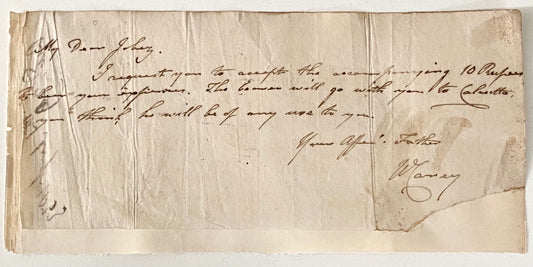 My Dear Jabez.
I request you to accept the accompanying 10 Rupees
to bear your expences. The bearer will go with you to Calcutta.
you think he will be of any use to you.
Your Affect. Father
W Carey